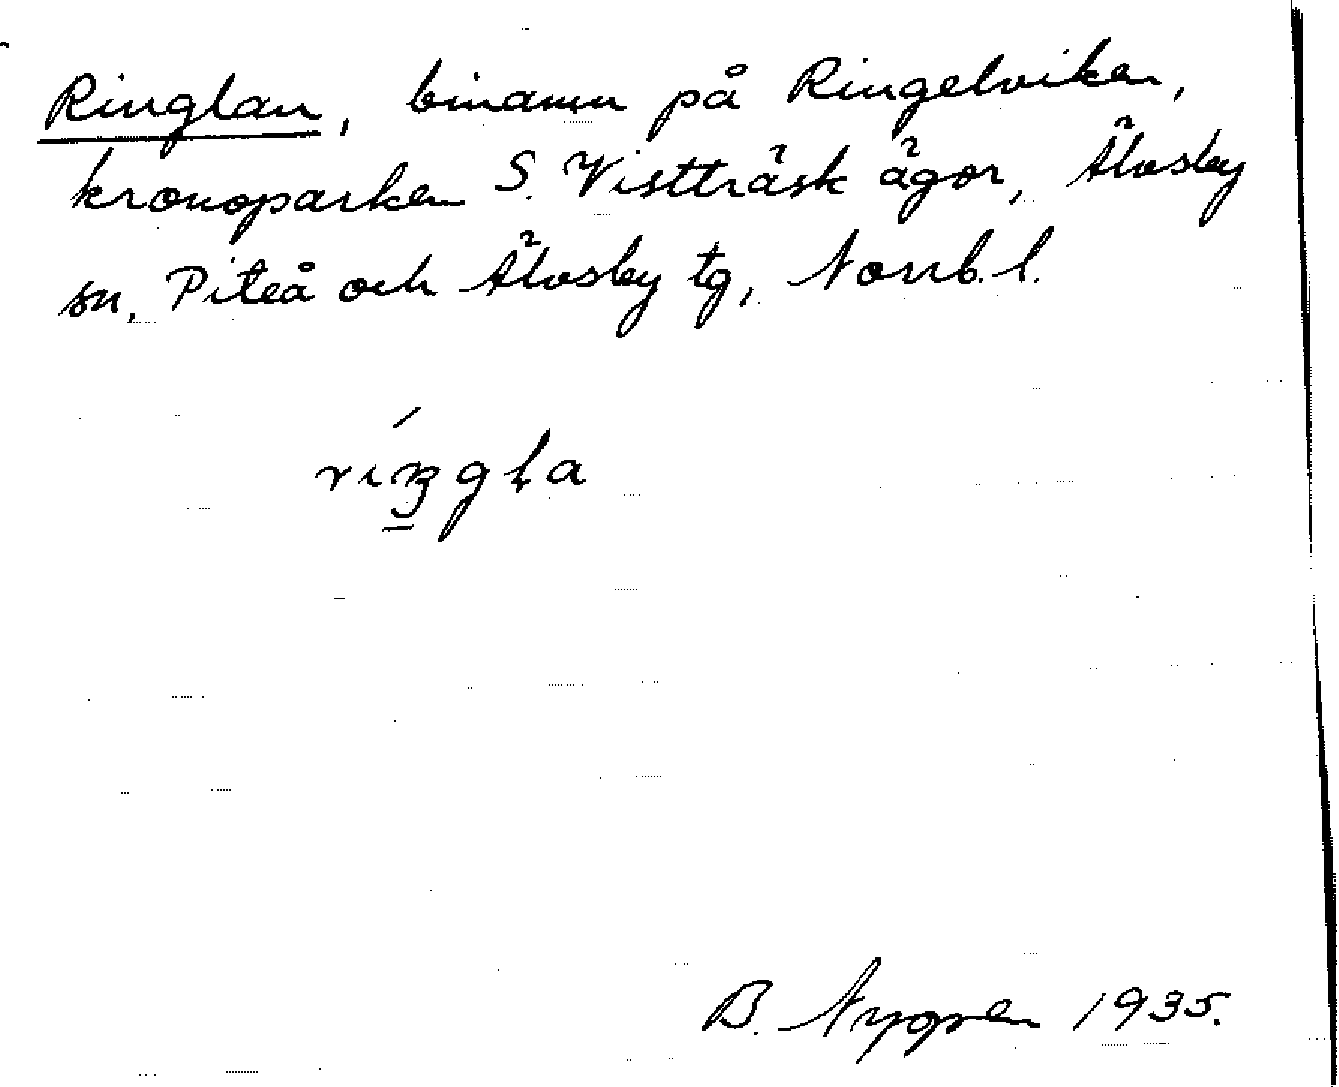 Ringlan, binamn på Ringelviken,
kronoparken S. Vistträsk ägor, Älvsby
sn, Piteå och Älvsby tg, Norrb. l.
ríŋgla
B. Nygren 1935.